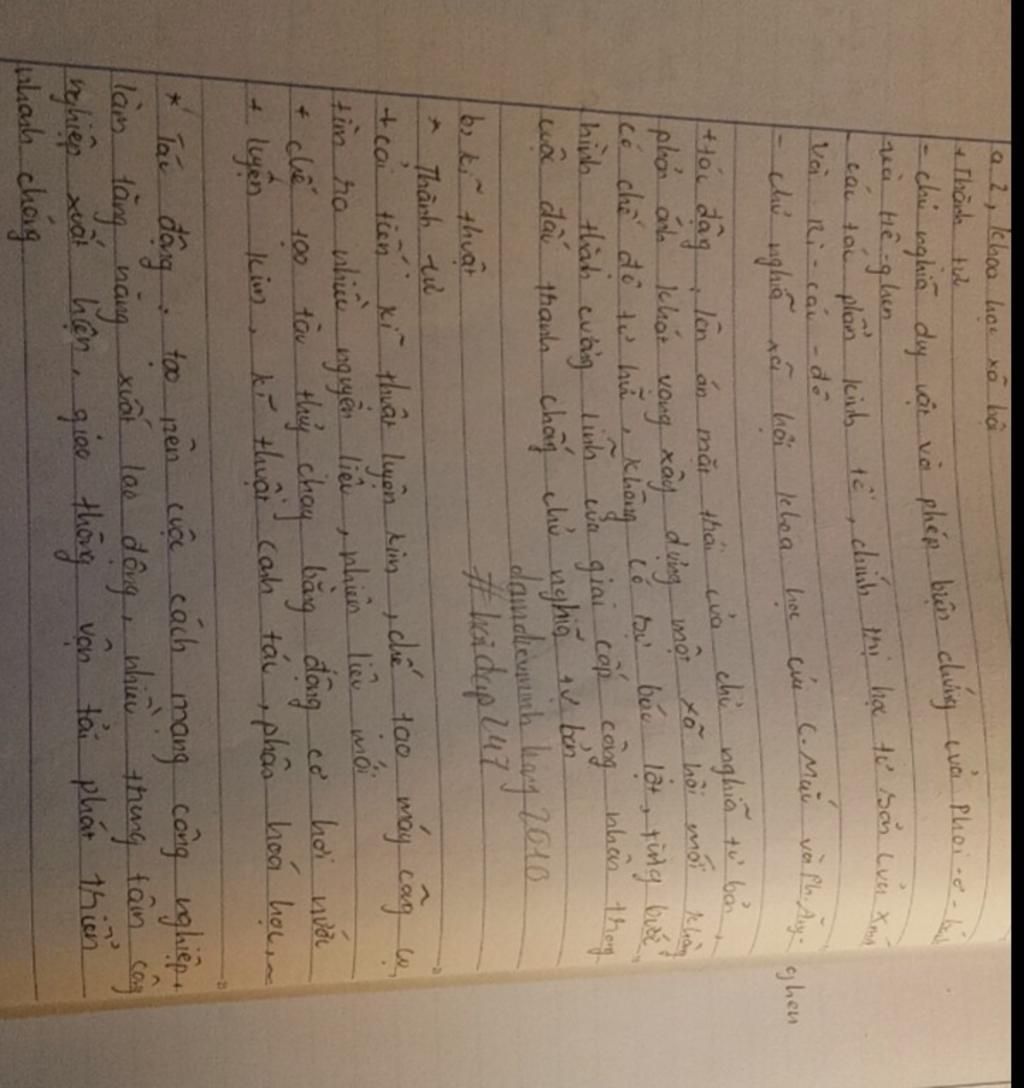 a.2, khoa học xã hội
+ Thành tựu
- chủ nghĩa duy vật và phép biện chứng của Phoi-ơ-bách
và Hê-ghen
- các tác phẩm kinh tế, chính trị học tư sản của Xmít
và Ri-các-đô
- chủ nghĩa xã hội khoa học của C.Mác và Ph.Ăng-ghen
+ tác động, lên án mặt thái của chủ nghĩa tư bản,
phản ánh khát vọng xây dựng một xã hội mới không
có chế độ tư hữu, không có sự bóc lột, từng bước
hình thành cương lĩnh của giai cấp công nhân trong
cuộc đấu tranh chống chủ nghĩa tư bản
damdieuminh hang 2010
b, kĩ thuật #hoidap247
* Thành tựu
+ cải tiến kĩ thuật luyện kim, chế tạo máy công cụ,
tìm ra nhiều nguyên liệu, nhiên liệu mới
+ chế tạo tàu thủy chạy bằng động cơ hơi nước
+ luyện kim, kĩ thuật canh tác, phân hoá học,...
* Tác động: tạo nên cuộc cách mạng công nghiệp,
làm tăng năng xuất lao động, nhiều trung tâm công
nghiệp xuất hiện, giao thông vận tải phát triển
nhanh chóng